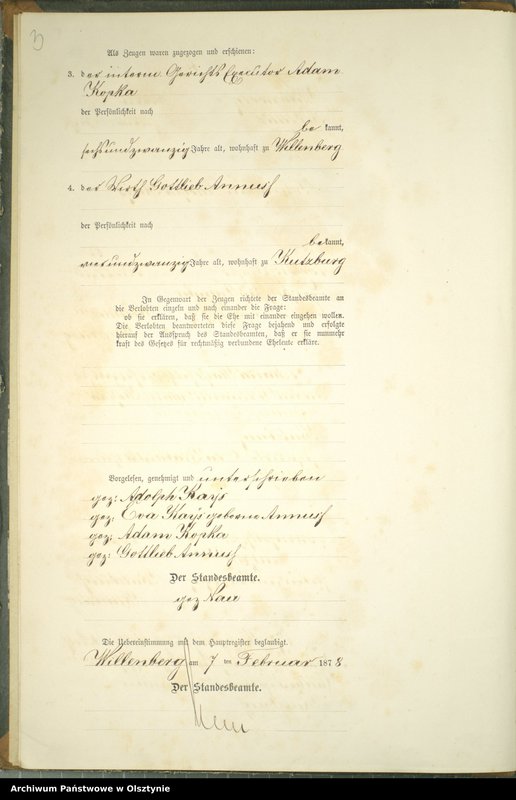 3
Als Zeugen waren zugezogen und erschienen:
3. der interm. Gerichts Executor Adam
Kopka
der Persönlichkeit nach
be kannt,
sechsundzwanzig Jahre alt, wohnhaft zu Willenberg
4. der Wirth Gottlieb Annusß
der Persönlichkeit nach
bekannt,
vierundzwanzig Jahre alt, wohnhaft zu Kutzburg
In Gegenwart der Zeugen richtete der Standesbeamte an
die Verlobten einzeln und nach einander die Frage:
ob sie erklären, daß sie die Ehe mit einander eingehen wollen.
Die Verlobten beantworteten diese Frage bejahend und erfolgte
hierauf der Ausspruch des Standesbeamten, daß er sie nunmehr
kraft des Gesetzes für rechtmäßig verbundene Eheleute erkläre.
Vorgelesen, genehmigt und unterschrieben
gez: Adolph Kays
gez: Eva Kays geborne Annusß
gez: Adam Kopka
gez: Gottlieb Annusß
Der Standesbeamte.
gez Nau
Die Uebereinstimmung mit dem Hauptregister beglaubigt.
Willenberg am 7 ten Februar 1878
Der Standesbeamte.
Archiwum Państwowe w Olsztynie